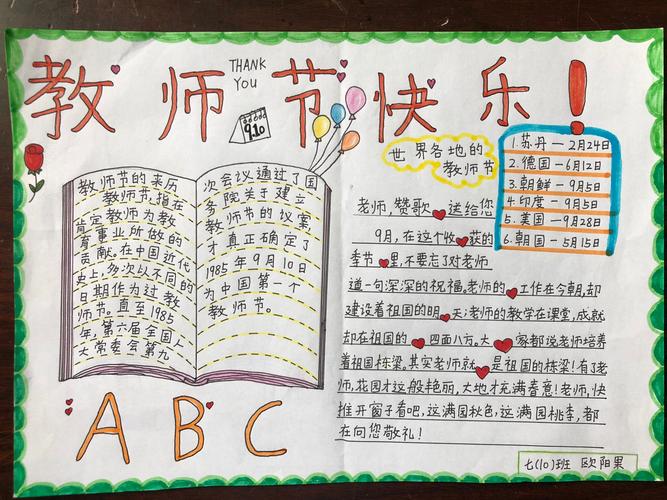 教师节快乐!
THANK
YOU
9.10
教师节的来历
教师节,指在
肯定教师为教
育事业所做的
贡献。在中国近代
史上,多次以不同的
日期作为过教
师节。直至1985
年,第六届全国人
大常委会第九
次会议通过了国
务院关于建立
教师节的议案
才真正确定了
1985年9月10日
为中国第一个
教师节。
A B C
世界各地的
教师节
1.苏丹—2月24日
2.德国—6月12日
3.朝鲜—9月5日
4.印度—9月5日
5.美国—9月28日
6.朝国—5月15日
老师,赞歌送给您
9月,在这个收获的
季节里,不要忘了对老师
道一句深深的祝福。老师的工作在今朝,却
建设着祖国的明天;老师的教学在课堂,成就
却在祖国的四面八方。大家都说老师培养
着祖国栋梁。其实老师就是祖国的栋梁!有了老
师,花园才这般艳丽,大地才充满春意!老师,快
推开窗子看吧,这满园秋色,这满园桃李,都
在向您敬礼!
七(10)班 欧阳果